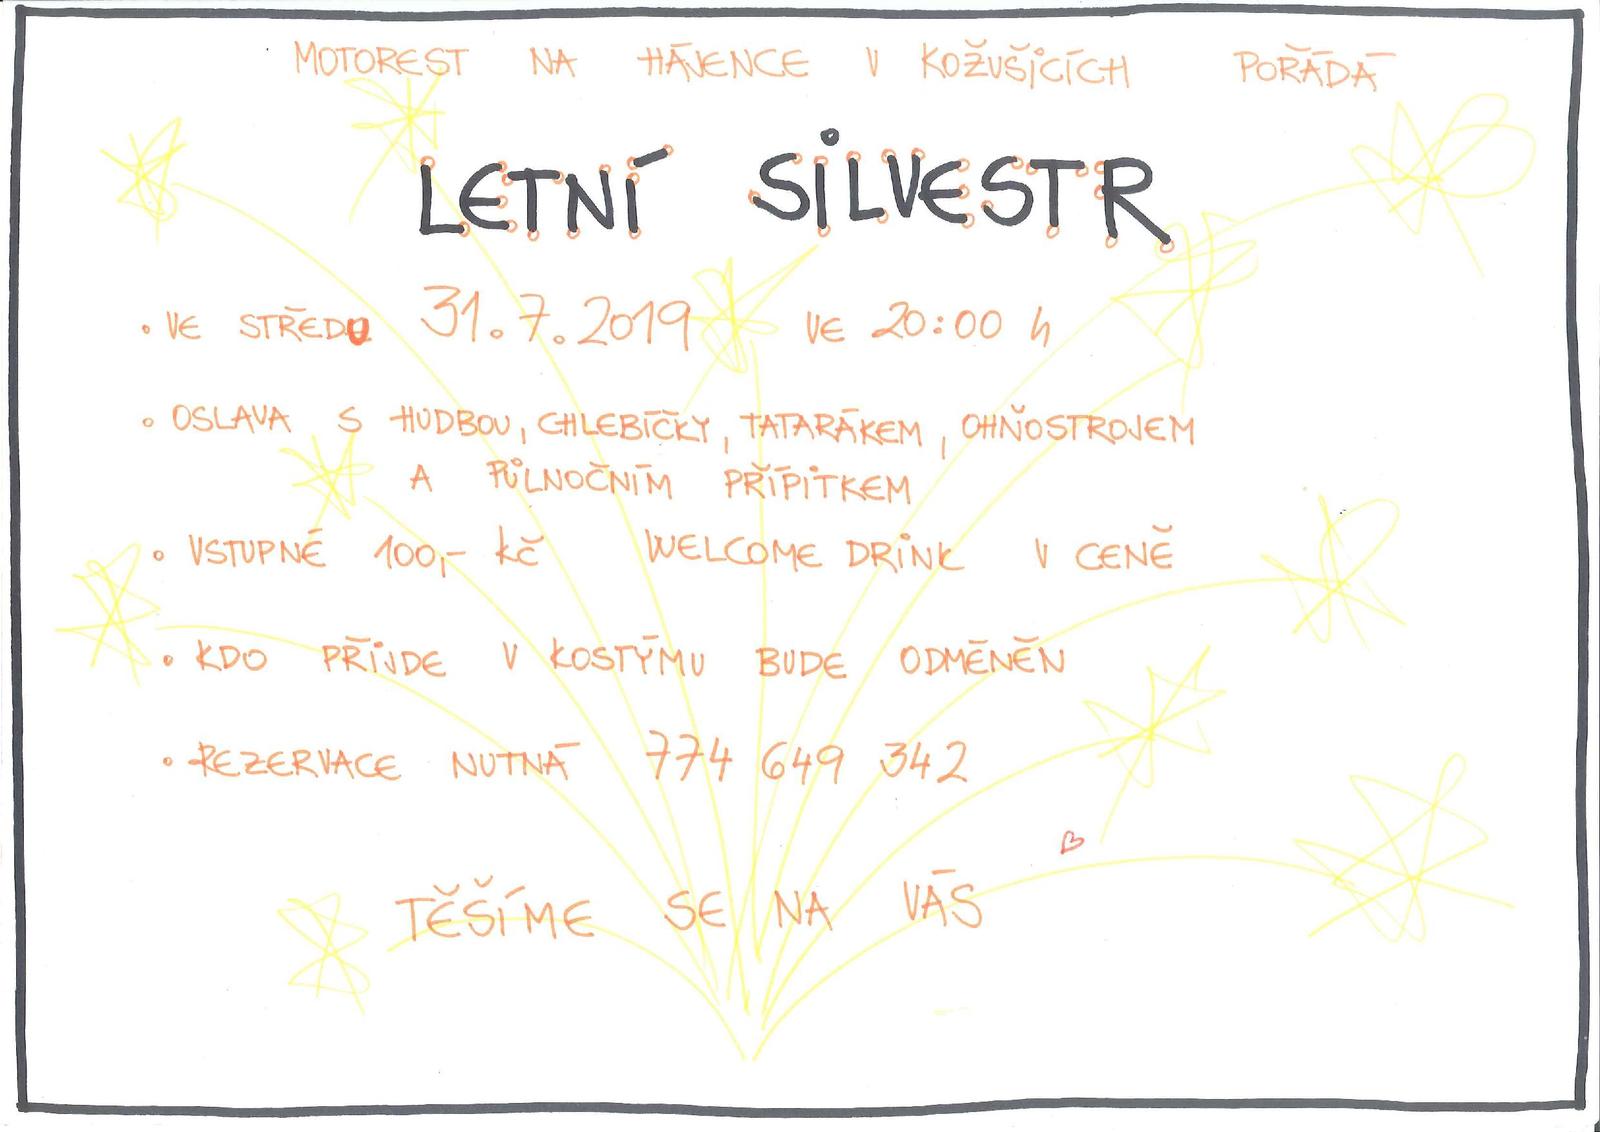 MOTOREST NA HÁJENCE V KOŽUŠICÍCH POŘÁDÁ
LETNÍ SILVESTR
• VE STŘEDU 31.7.2019 VE 20:00 h
• OSLAVA S HUDBOU, CHLEBÍČKY, TATARÁKEM, OHŇOSTROJEM
A PŮLNOČNÍM PŘÍPITKEM
• VSTUPNÉ 100,- kč WELCOME DRINK V CENĚ
• KDO PŘIJDE V KOSTÝMU BUDE ODMĚNĚN
• REZERVACE NUTNÁ 774 649 342
TĚŠÍME SE NA VÁS